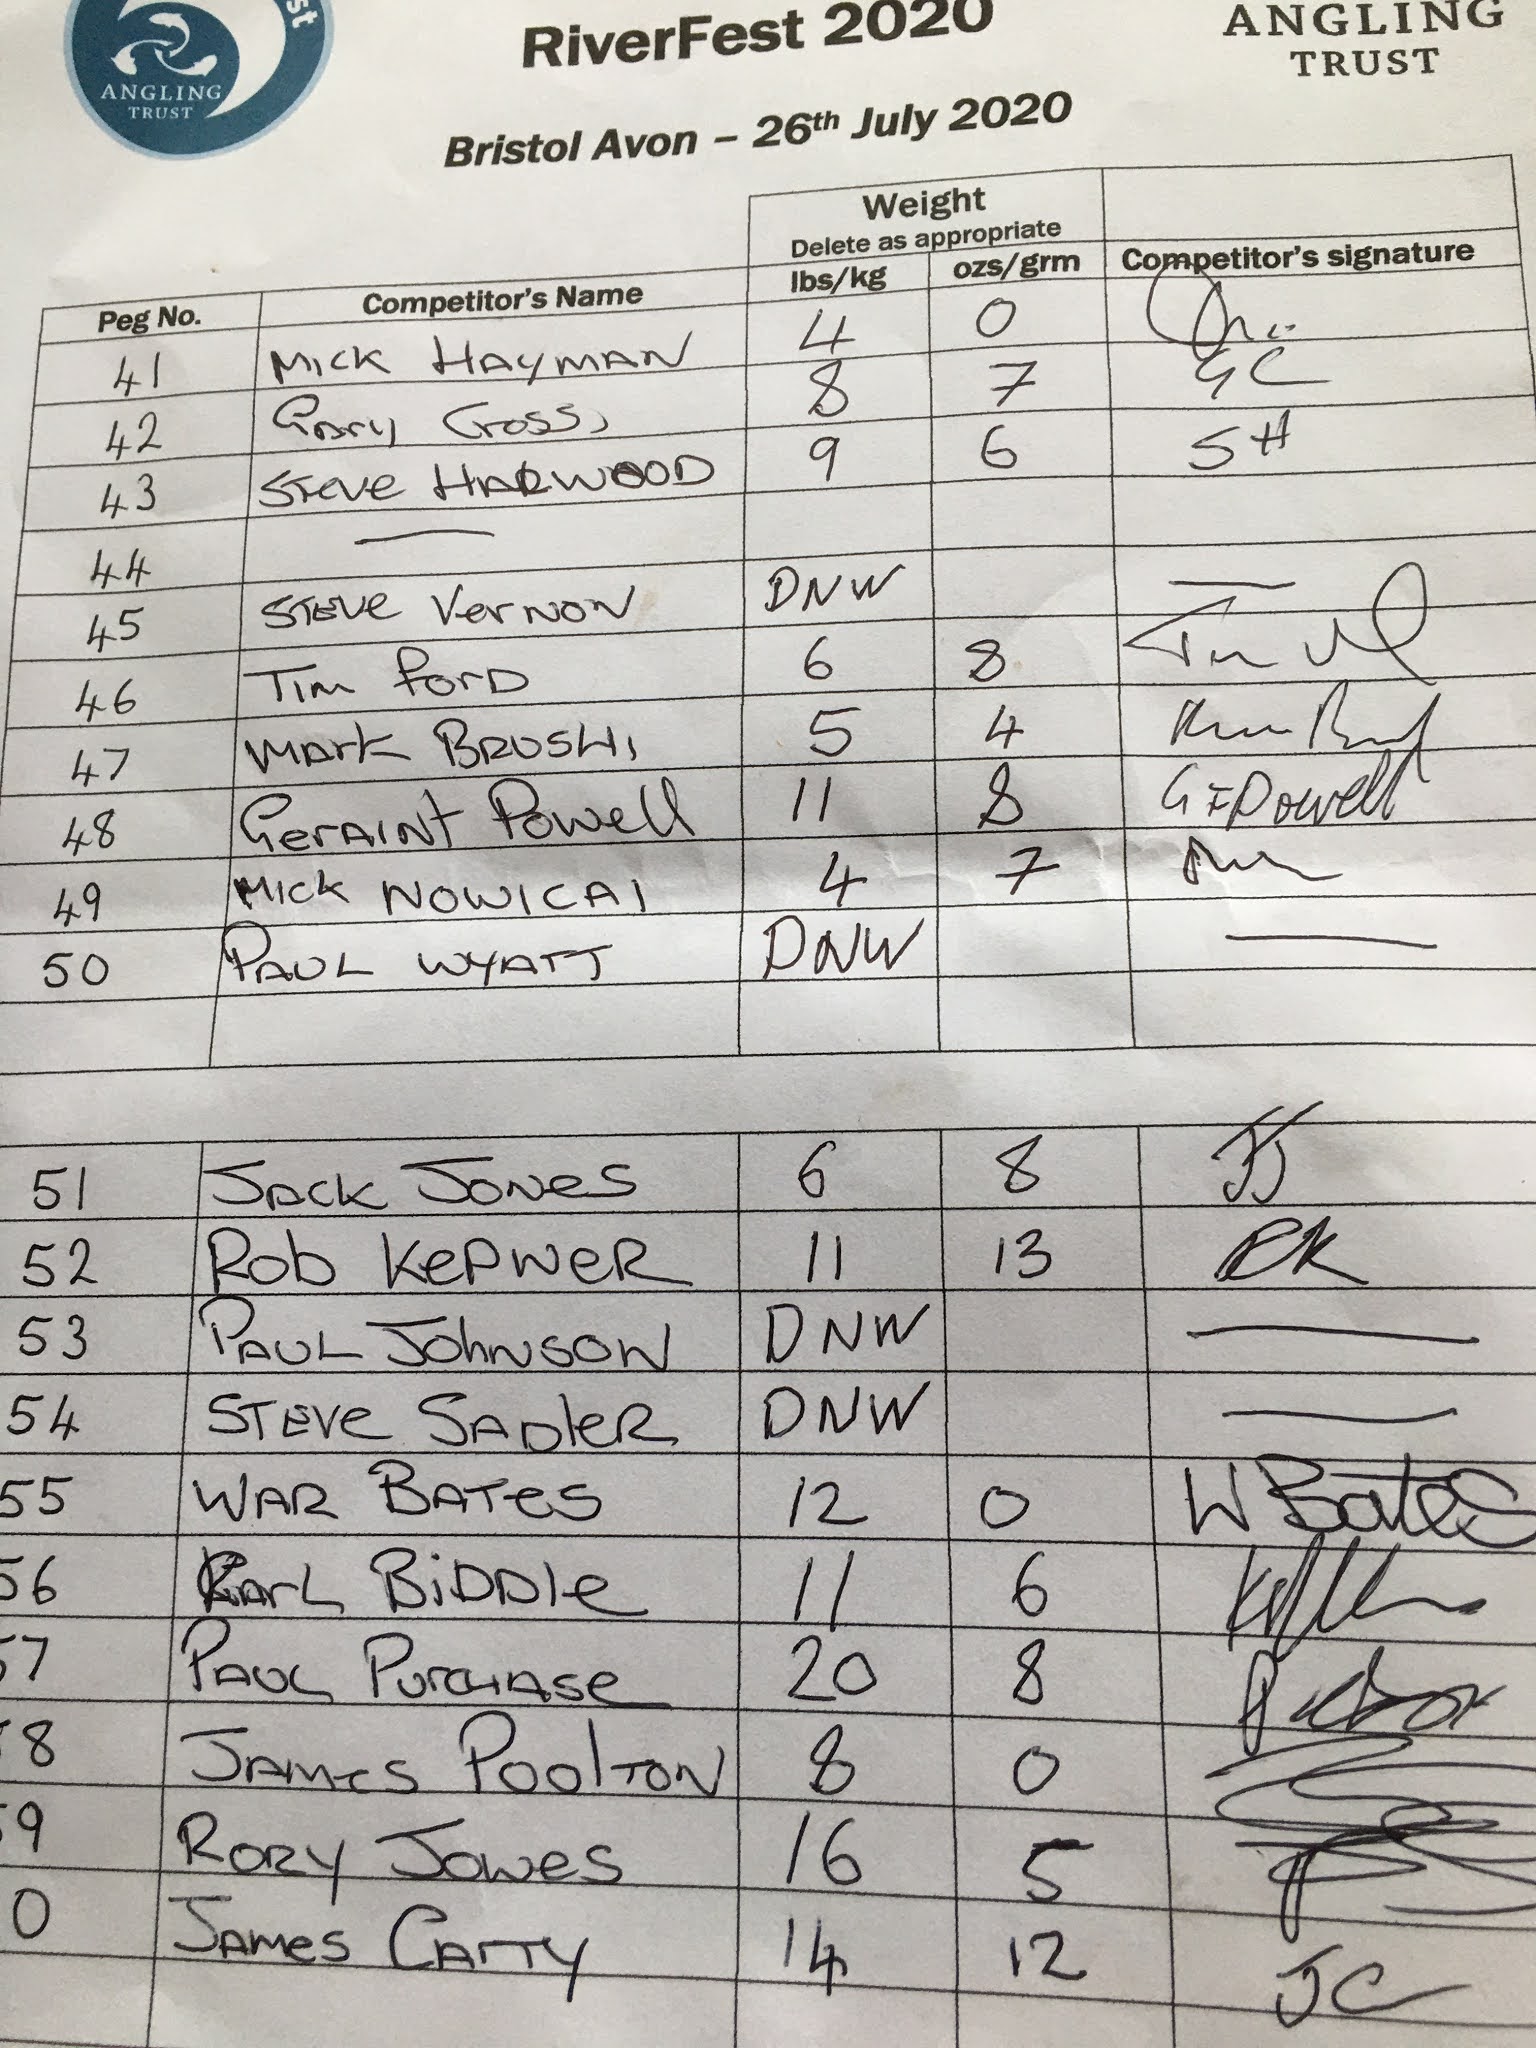 st
ANGLING
TRUST
RiverFest 2020
ANGLING
TRUST
Bristol Avon – 26th July 2020
Weight
Delete as appropriate
Peg No. Competitor's Name lbs/kg ozs/grm Competitor's signature
41 MICK HAYMAN 4 0
42 Gary Cross 8 7 GC
43 STEVE HARWOOD 9 6 SH
44 —
45 STEVE VERNON DNW —
46 Tim FORD 6 8
47 MARK BRUSHI 5 4
48 GERAINT POWell 11 8 G F Powell
49 MICK NOWICAI 4 7
50 PAUL WYATT DNW —
51 JACK JONES 6 8 JJ
52 ROb KEPNER 11 13 RK
53 PAUL JOhNSON DNW —
54 STEVE SADlER DNW —
55 WAR BATES 12 0 W Bates
56 KARL BiDDle 11 6
57 PAUL PURCHASE 20 8
8 JAMES POOlTON 8 0
9 RORY JONES 16 5
0 JAMES CARTY 14 12 JC